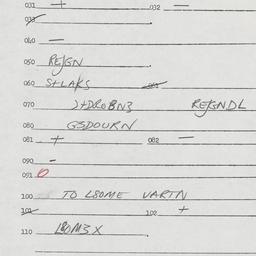 031 + 032 —
033
040 —
050 REJGN
060 S+LAKS
070 J+DROBN3 REJGNDL
080 GSDOURN
081 + 082 —
090 -
091 0
100 TO L80ME VARTN
101 102 +
110 L80M3X